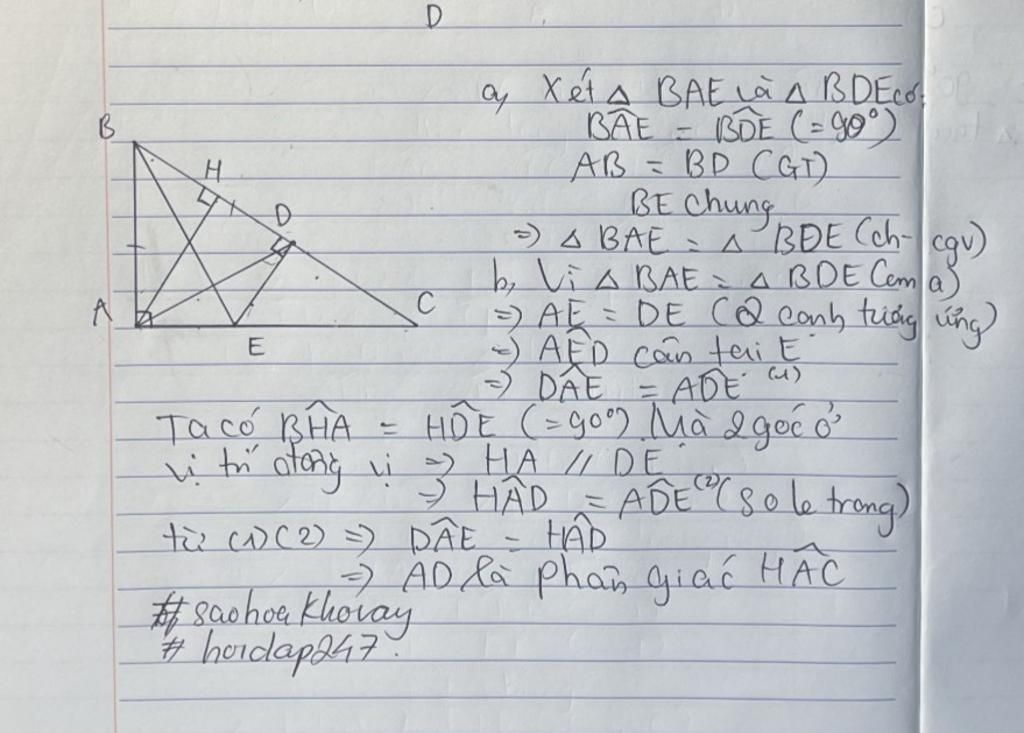 D
a, Xét △ BAE và △ BDE có:
BÂE = BD̂E (=90°)
B
AB = BD (GT)
H
BE chung
D
=> △ BAE = △ BDE (ch-cgv)
b, Vì △ BAE = △ BDE (cm a)
A
C
=> AE = DE (2 cạnh tương ứng)
E
=> AÊD cân tại E
=> DÂE = AD̂E (1)
Ta có BĤA = HD̂E (=90°). Mà 2 góc ở
vị trí đồng vị => HA // DE
=> HÂD = AD̂E (2) (so le trong)
từ (1) (2) => DÂE = HÂD
=> AD là phân giác HÂC
# saohoakhovay
# hoidap247.